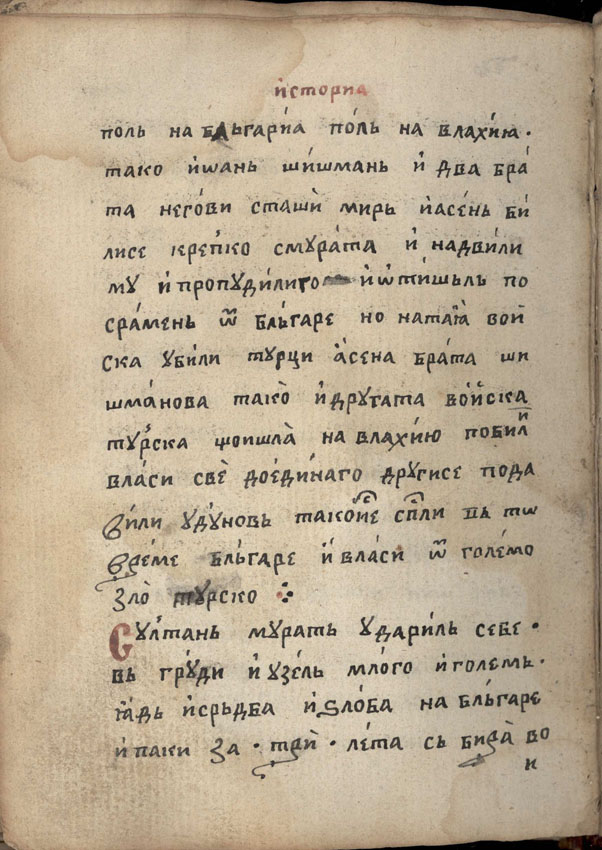 історїа
поль на бльгаріа поль на влахию·
тако иѡань шишмань и два бра
та негови сташи мирь иасень би
лисе крепко смурата и надвили
му и пропудилиго иѡтишьль по
срамень ѿ бльгаре но натаꙗ вои
ска убили турци асена брата ши
шманова тако идругата воиска
турска щоишла на влахию побили
власи све доединаго другисе пода
вили удуновь такоисе спⷭли вь тѡ
време бльгаре и власи ѿ големо
зло турско ჻
Султань мурать удариль себе·
вь груди и узель млого иголемь·
ꙗдь исрьдба иѕлоба на бльгаре
ипаки за · три · лета сь бира во
и